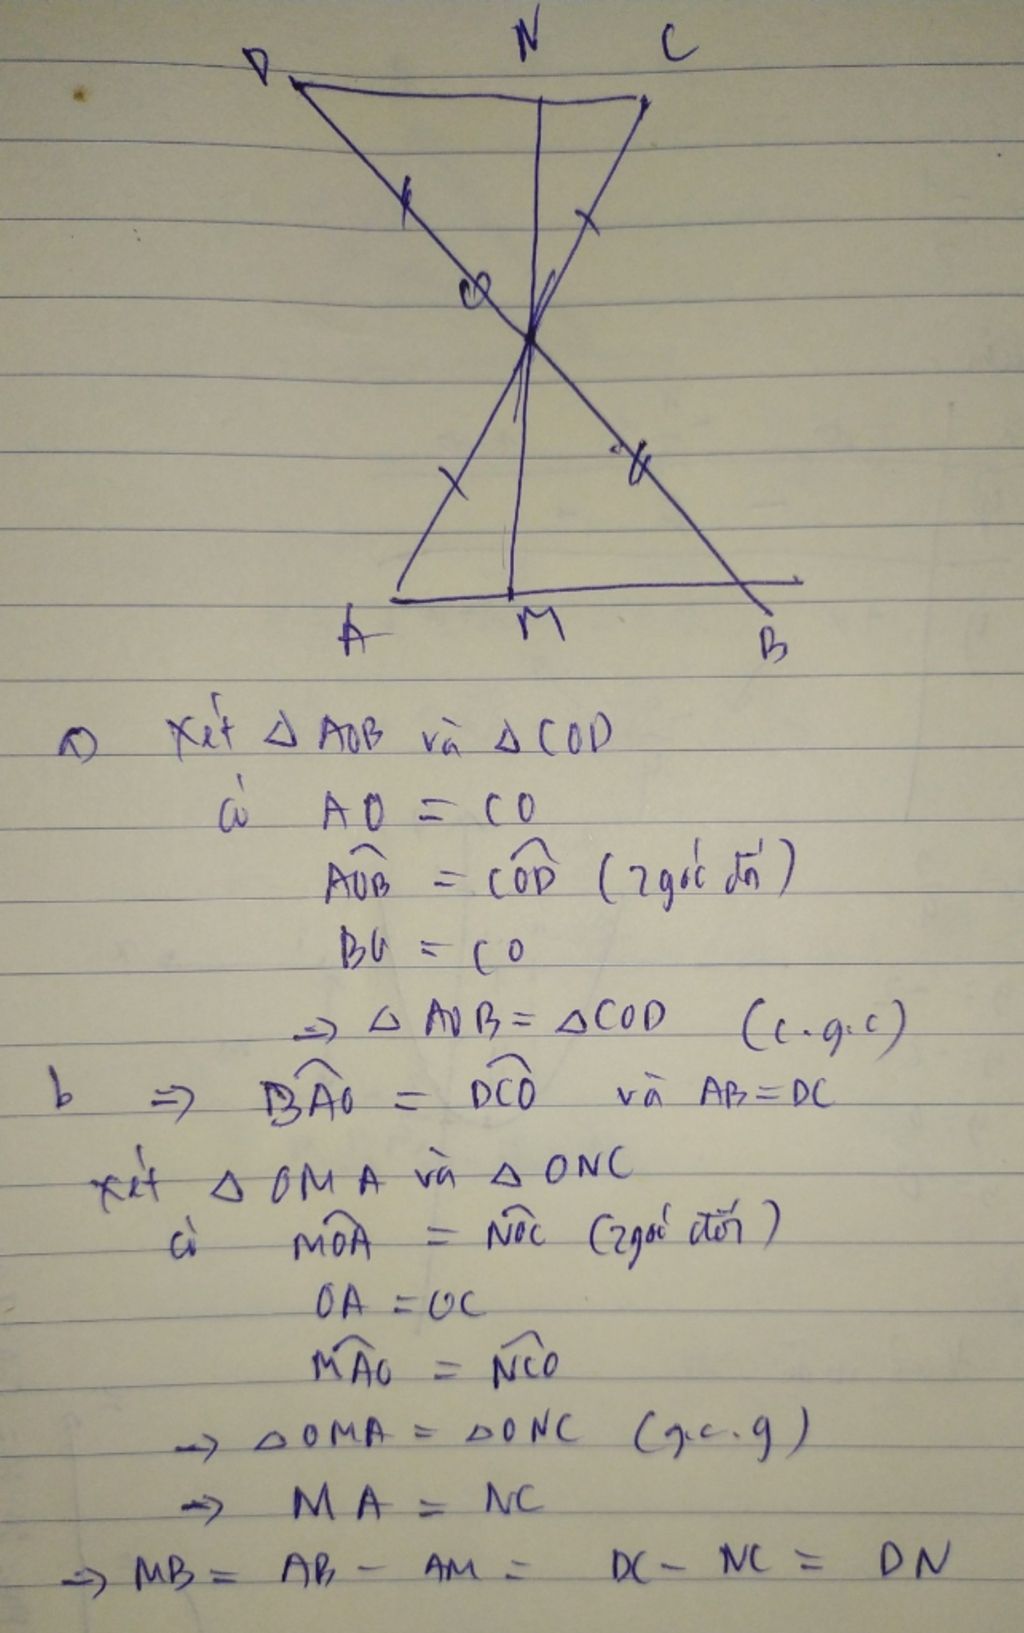 D N C
O
A M B
a) Xét Δ AOB và Δ COD
có AO = CO
AOB = COD (2 góc đđ)
BO = CO
=> Δ AOB = Δ COD (c.g.c)
b => BAO = DCO và AB = DC
xét Δ OMA và Δ ONC
có MOA = NOC (2 góc đđ)
OA = OC
MAO = NCO
=> Δ OMA = Δ ONC (g.c.g)
=> MA = NC
=> MB = AB - AM = DC - NC = DN